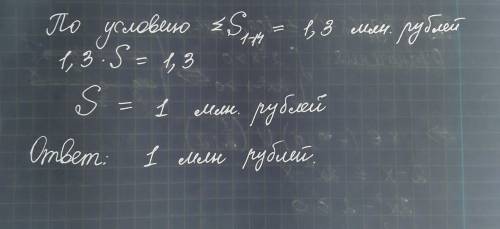 По условию ΣS₁₋₁₄ = 1,3 млн. рублей
1,3 · S = 1,3
S = 1 млн. рублей
Ответ: 1 млн рублей.